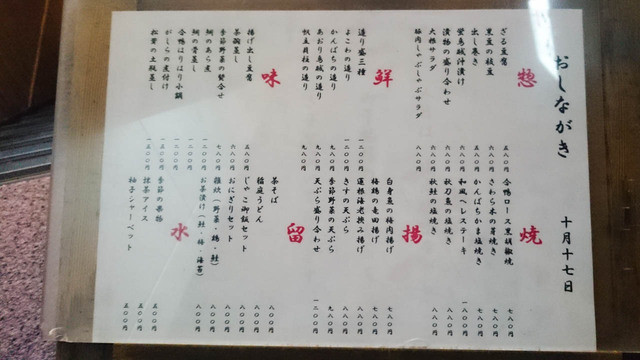 おしながき
十月十七日
惣
ざる豆腐 五五〇円
黒豆の枝豆 五五〇円
出し巻き 六五〇円
蛍烏賊沖漬け 五五〇円
漬物の盛り合わせ 六八〇円
大根サラダ 六八〇円
豚肉しゃぶしゃぶサラダ 八八〇円
鮮
造り盛三種 一二〇〇円
よこわの造り 一二〇〇円
かんぱちの造り 九八〇円
あおり烏賊の造り 九八〇円
帆立貝柱の造り 九八〇円
味
揚げ出し豆腐 五八〇円
茶碗蒸し 六八〇円
季節野菜の焚合せ 七八〇円
鯛のあら煮 一二〇〇円
鯛の骨蒸し 一二〇〇円
合鴨はりはり小鍋 一二〇〇円
がしらの煮付け 一五〇〇円
松茸の土瓶蒸し 一五〇〇円
焼
合鴨ロース黒胡椒焼 七八〇円
さわら木の芽焼き 七八〇円
かんぱちかま塩焼き 七八〇円
和風ヘレステーキ 一八〇〇円
秋刀魚の塩焼き 八〇〇円
秋鮭の塩焼き 八〇〇円
揚
白身魚の梅肉揚げ 七八〇円
梅鶏の竜田揚げ 七八〇円
蓮根海老挟み揚げ 八〇〇円
きすの天ぷら 八〇〇円
季節野菜の天ぷら 九八〇円
天ぷら盛り合わせ 一二〇〇円
留
茶そば 八〇〇円
稲庭うどん 八〇〇円
じゃこ御飯セット 八〇〇円
おにぎりセット 八〇〇円
雑炊(野菜・鶏・鮭) 八〇〇円
お茶漬け(鮭・梅・海苔) 八〇〇円
水
季節の果物 五〇〇円
抹茶アイス 五〇〇円
柚子シャーベット 五〇〇円